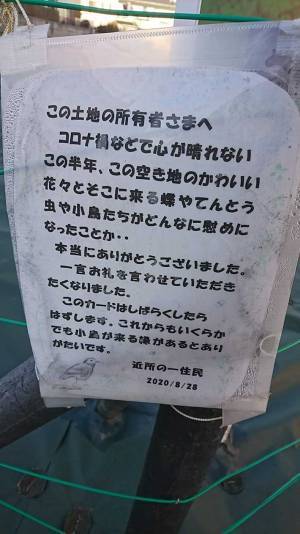 この土地の所有者さまへ
コロナ禍などで心が晴れない
この半年、この空き地のかわいい
花々とそこに来る蝶やてんとう
虫や小鳥たちがどんなに慰めに
なったことか・・
本当にありがとうございました。
一言お礼を言わせていただき
たくなりました。
このカードはしばらくしたら
はずします。これからもいくらか
でも小鳥が来る緑があるとあり
がたいです。
近所の一住民
2020/8/28